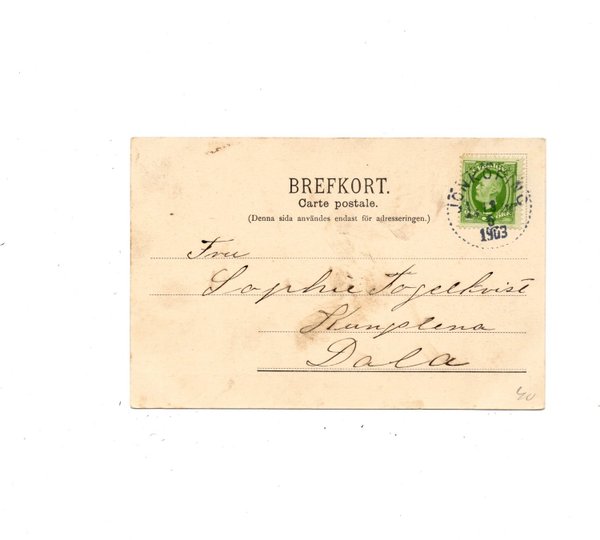 BREFKORT.
Carte postale.
(Denna sida användes endast för adresseringen.)
JÖNKÖPING
1903
Fru
Sophie Fogelkvist
Kungslena
Dala
40